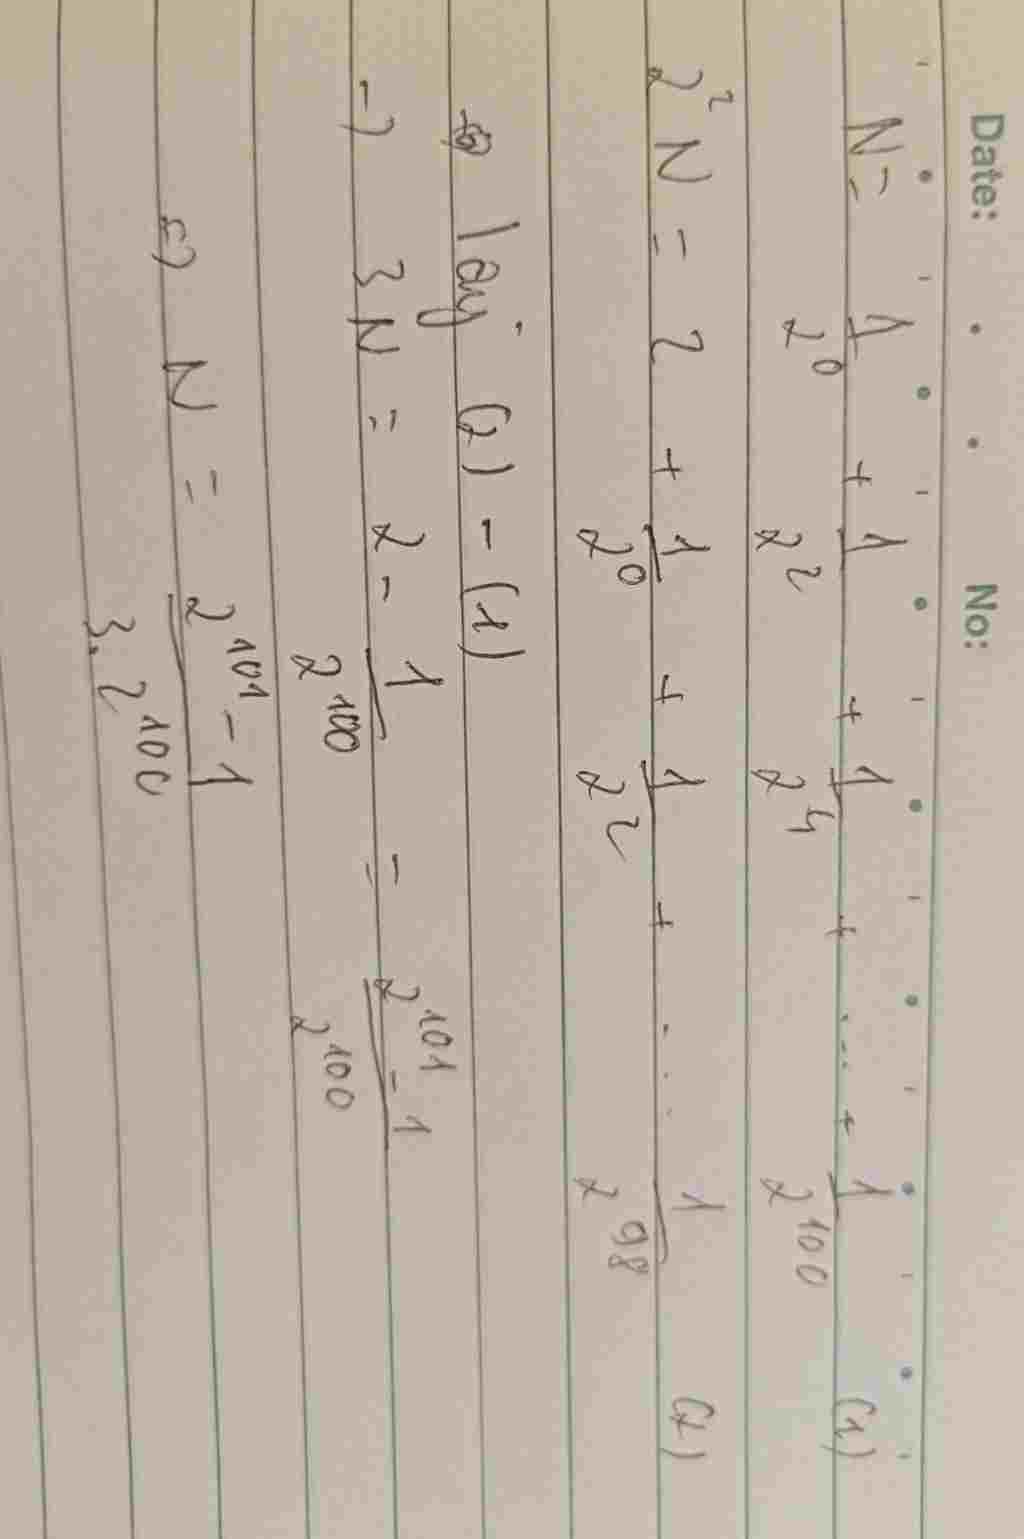 Date: No:
N = 1/2^0 + 1/2^2 + 1/2^4 + ... + 1/2^100 (1)
2^2 N = 2 + 1/2^0 + 1/2^2 + ... 1/2^98 (2)
lấy (2) - (1)
-) 3N = 2 - 1/2^100 = 2^101 - 1/2^100
=) N = 2^101 - 1/3.2^100